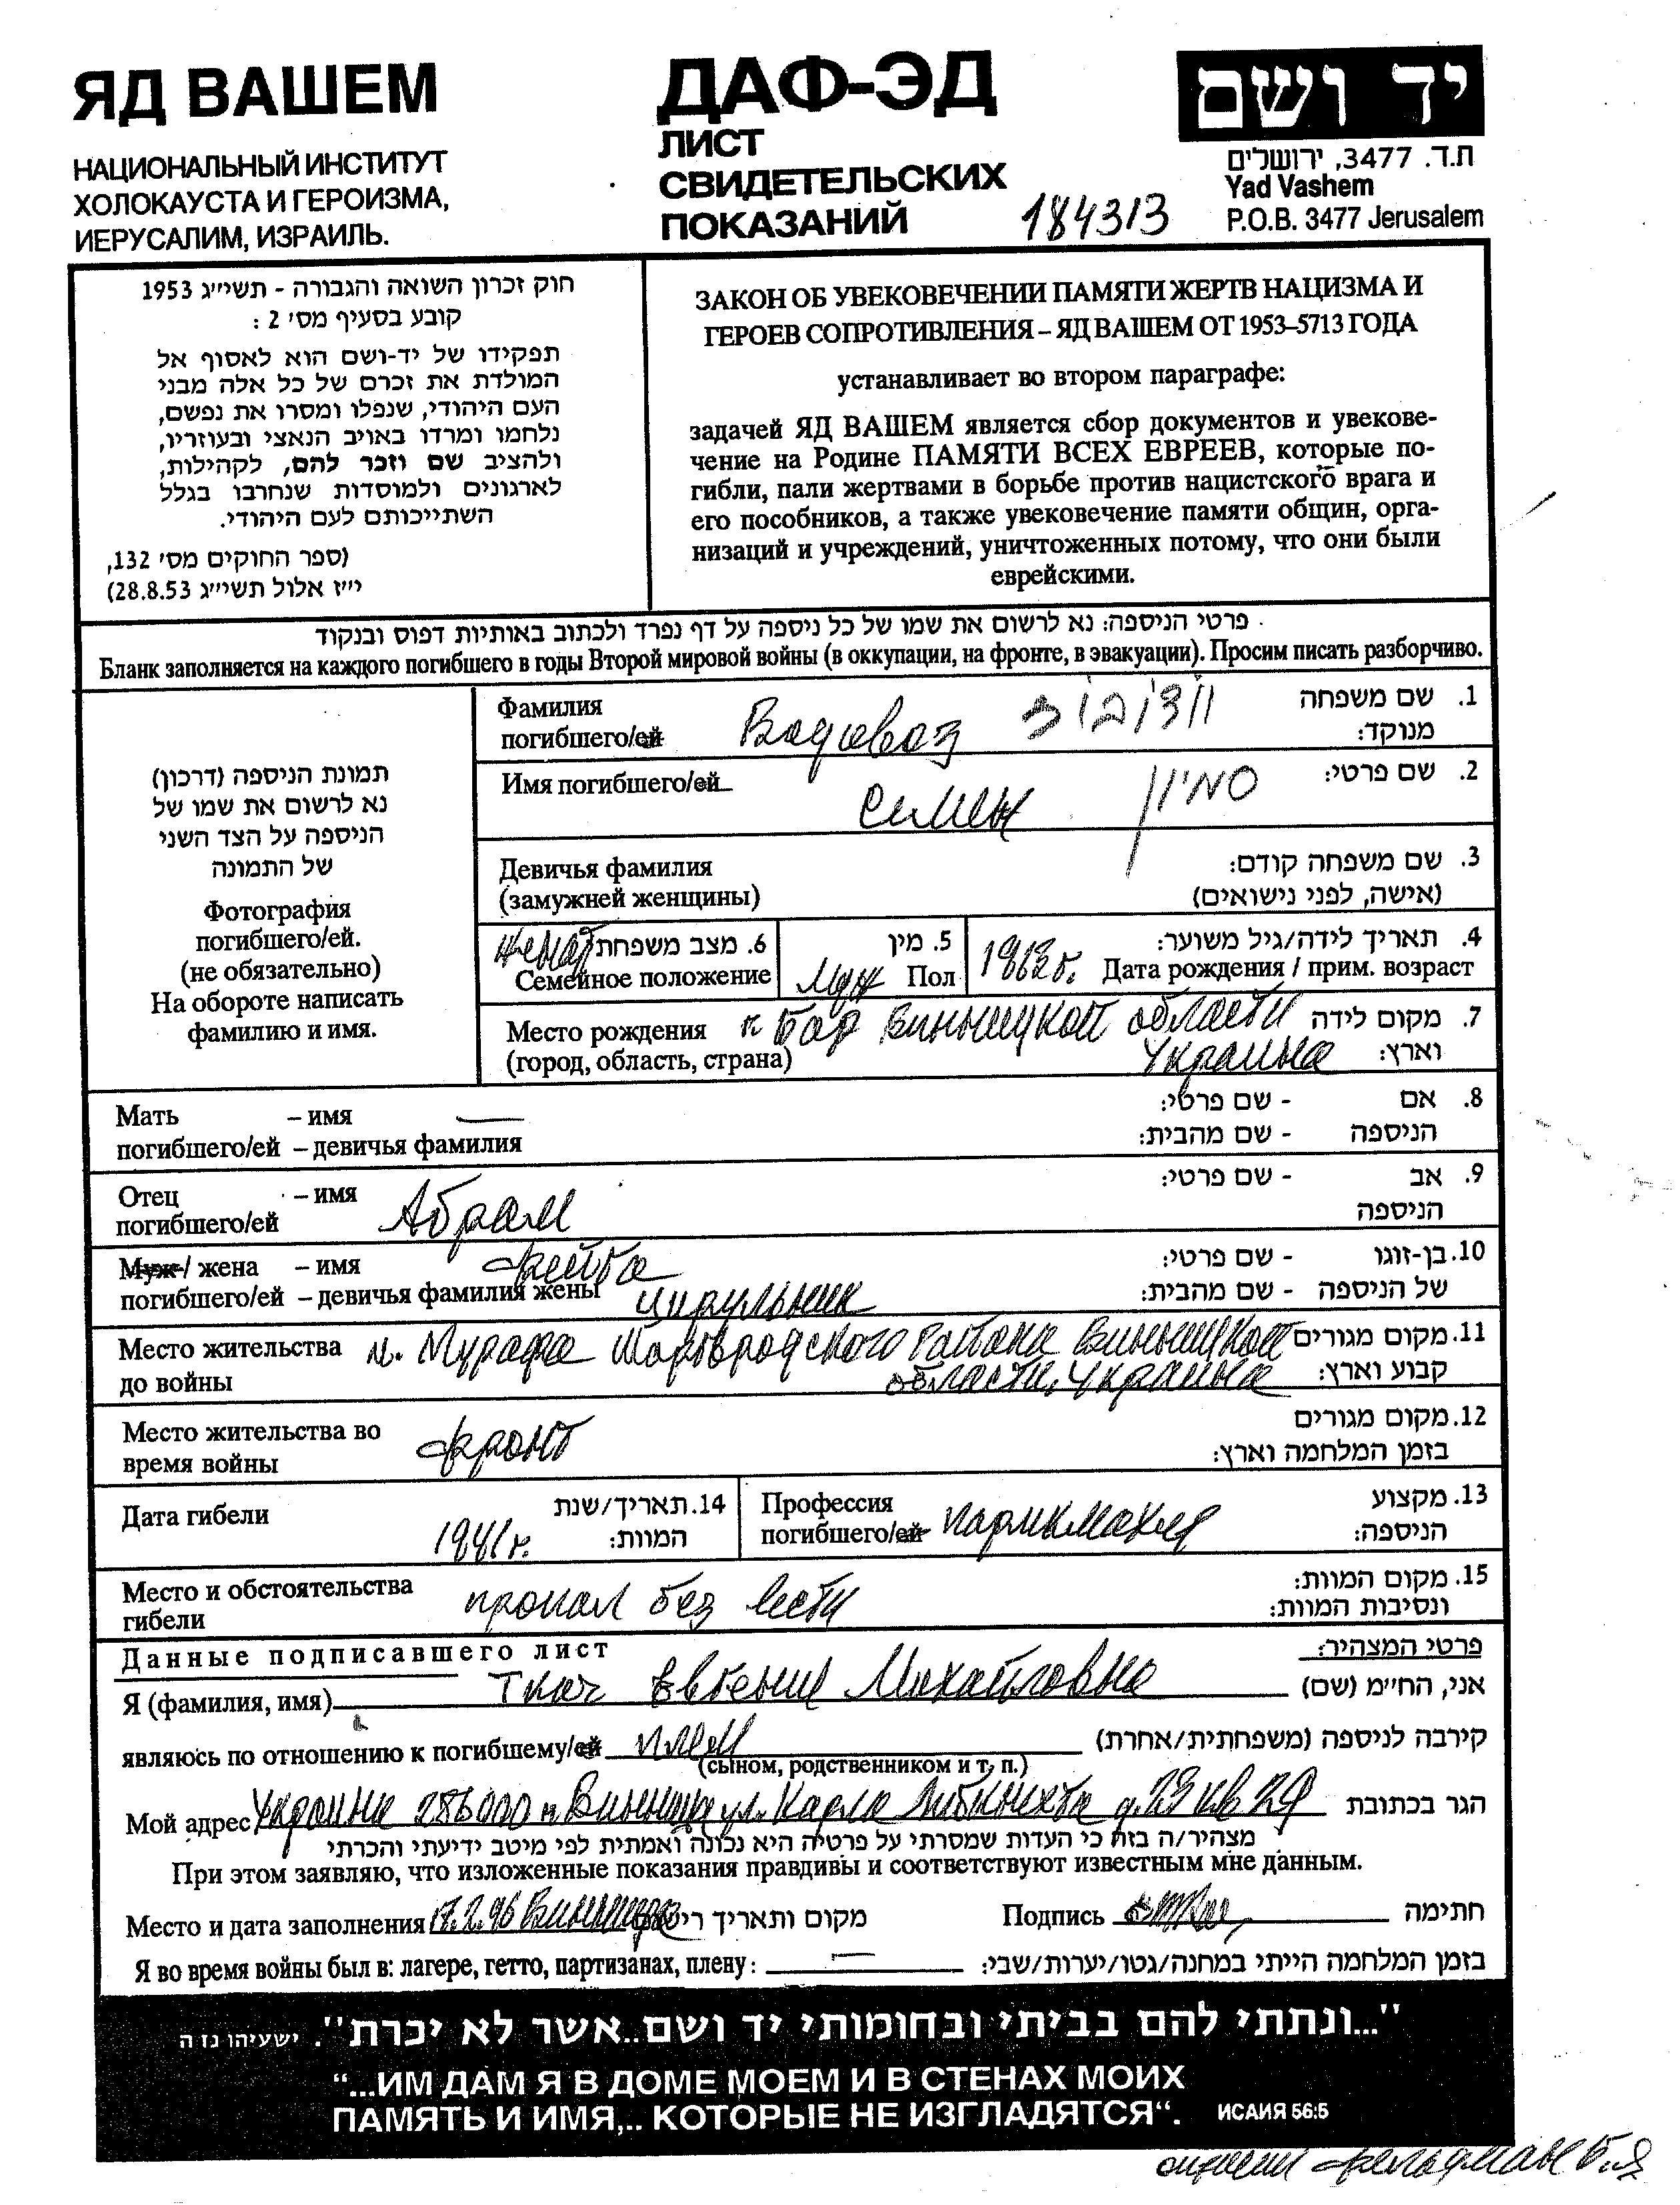 ЯД ВАШЕМ
НАЦИОНАЛЬНЫЙ ИНСТИТУТ
ХОЛОКАУСТА И ГЕРОИЗМА,
ИЕРУСАЛИМ, ИЗРАИЛЬ.
ДАФ-ЭД
ЛИСТ
СВИДЕТЕЛЬСКИХ
ПОКАЗАНИЙ
184313
יד ושם
ת.ד. 3477, ירושלים
Yad Vashem
P.O.B. 3477 Jerusalem
חוק זכרון השואה והגבורה - תשי״ג 1953
קובע בסעיף מס׳ 2 :
תפקידו של יד-ושם הוא לאסוף אל
המולדת את זכרם של כל אלה מבני
העם היהודי, שנפלו ומסרו את נפשם,
נלחמו ומרדו באויב הנאצי ובעוזריו,
ולהציב שם וזכר להם, לקהילות,
לארגונים ולמוסדות שנחרבו בגלל
השתייכותם לעם היהודי.
(ספר החוקים מס׳ 132,
י״ז אלול תשי״ג 28.8.53)
ЗАКОН ОБ УВЕКОВЕЧЕНИИ ПАМЯТИ ЖЕРТВ НАЦИЗМА И
ГЕРОЕВ СОПРОТИВЛЕНИЯ – ЯД ВАШЕМ ОТ 1953–5713 ГОДА
устанавливает во втором параграфе:
задачей ЯД ВАШЕМ является сбор документов и увекове-
чение на Родине ПАМЯТИ ВСЕХ ЕВРЕЕВ, которые по-
гибли, пали жертвами в борьбе против нацистского врага и
его пособников, а также увековечение памяти общин, орга-
низаций и учреждений, уничтоженных потому, что они были
еврейскими.
פרטי הניספה: נא לרשום את שמו של כל ניספה על דף נפרד ולכתוב באותיות דפוס ובנקוד
Бланк заполняется на каждого погибшего в годы Второй мировой войны (в оккупации, на фронте, в эвакуации). Просим писать разборчиво.
תמונת הניספה (דרכון)
נא לרשום את שמו של
הניספה על הצד השני
של התמונה
Фотография
погибшего/ей.
(не обязательно)
На обороте написать
фамилию и имя.
Фамилия
погибшего/ей Водовоз וודובוז
1. שם משפחה
מנוקד:
Имя погибшего/ей Семен סמיון
2. שם פרטי:
Девичья фамилия
(замужней женщины)
3. שם משפחה קודם:
(אישה, לפני נישואים)
женат 6. מצב משפחתי
Семейное положение
5. מין
муж Пол
4. תאריך לידה/גיל משוער:
Дата рождения / прим. возраст
Место рождения г. Бар Винницкой области
(город, область, страна) Украина
7. מקום לידה
וארץ:
Мать – имя —
погибшего/ей – девичья фамилия
8. אם - שם פרטי:
הניספה - שם מהבית:
Отец – имя Абрам
погибшего/ей
9. אב - שם פרטי:
הניספה
Муж / жена – имя Фейга
погибшего/ей – девичья фамилия жены Цирульник
10. בן-זוגו - שם פרטי:
של הניספה - שם מהבית:
Место жительства м. Мурафа Шаргородского района Винницкой
до войны области, Украина
11. מקום מגורים
קבוע וארץ:
Место жительства во фронт
время войны
12. מקום מגורים
בזמן המלחמה וארץ:
Дата гибели 1941г.
14. תאריך/שנת
המוות:
Профессия
погибшего/ей парикмахер
13. מקצוע
הניספה:
Место и обстоятельства
гибели пропал без вести
15. מקום המוות:
ונסיבות המוות:
Данные подписавшего лист
פרטי המצהיר:
Я (фамилия, имя) Ткач Евгения Михайловна אני, הח״מ (שם)
являюсь по отношению к погибшему/ей קירבה לניספה (משפחתית/אחרת)
(сыном, родственником и т. п.)
Мой адрес Украина 286000 г. Винница ул. Карла Либкнехта д. 23 кв 29 הגר בכתובת
מצהיר/ה בזה כי העדות שמסרתי על פרטיה היא נכונה ואמתית לפי מיטב ידיעתי והכרתי
При этом заявляю, что изложенные показания правдивы и соответствуют известным мне данным.
Место и дата заполнения 17.2.96 Винница מקום ותאריך Подпись חתימה
Я во время войны был в: лагере, гетто, партизанах, плену: — בזמן המלחמה הייתי במחנה/גטו/יערות/שבי:
"...ונתתי להם בביתי ובחומותי יד ושם..אשר לא יכרת". ישעיהו נז ה
“...ИМ ДАМ Я В ДОМЕ МОЕМ И В СТЕНАХ МОИХ
ПАМЯТЬ И ИМЯ,.. КОТОРЫЕ НЕ ИЗГЛАДЯТСЯ“. ИСАИЯ 56:5
Фельдман Б.Я